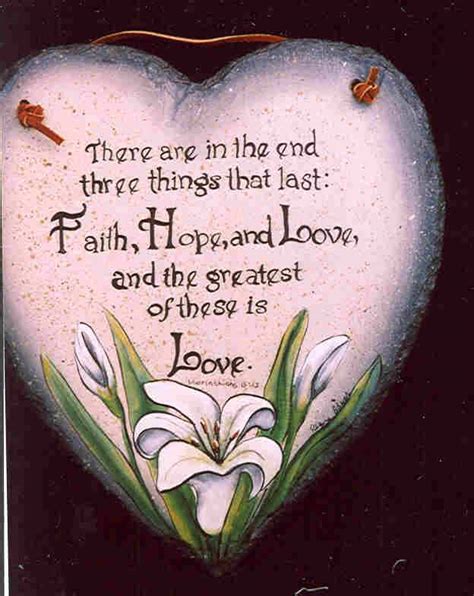 There are in the end
three things that last:
Faith, Hope, and Love,
and the greatest
of these is
Love.